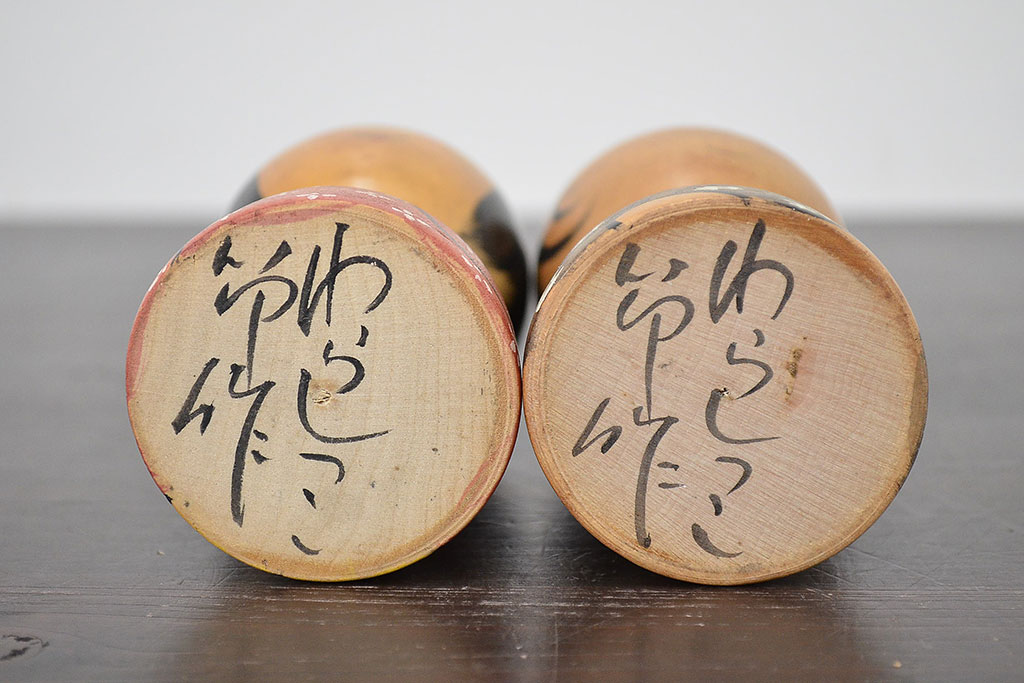 わらしっこ
節作
わらしっこ
節作